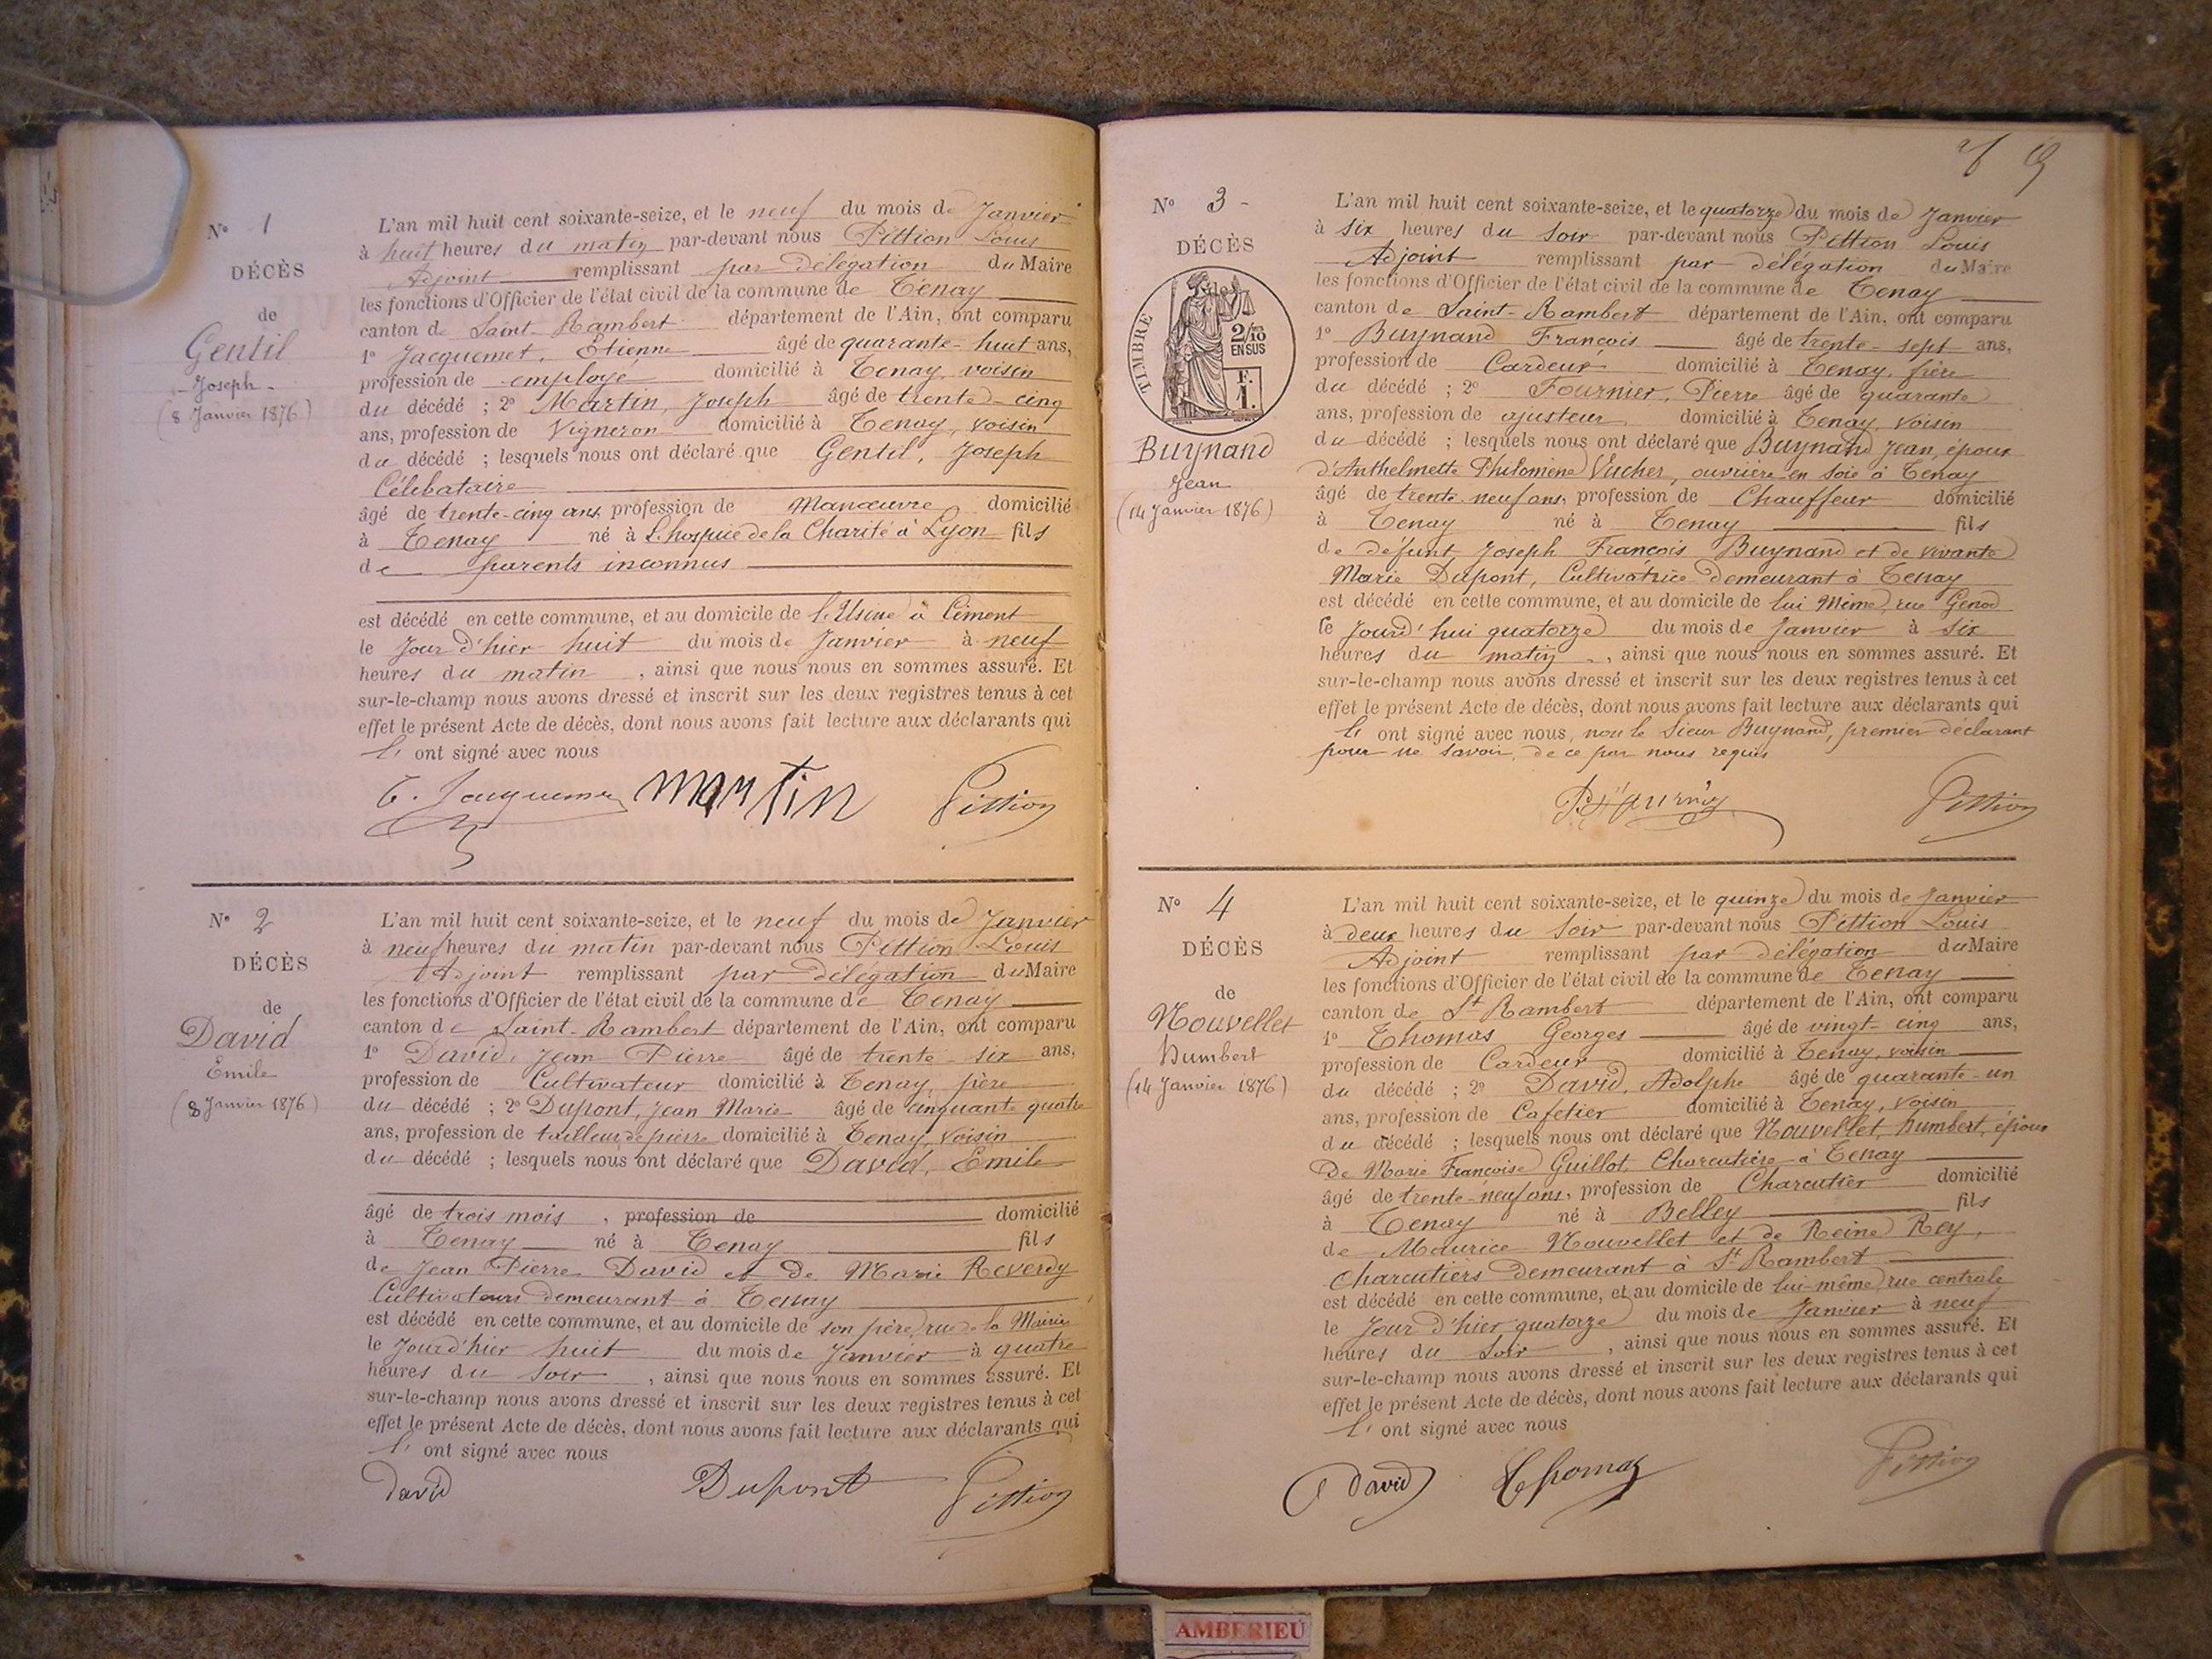 Nº 1
DÉCÈS
de
Gentil
Joseph
(8 Janvier 1876)
L'an mil huit cent soixante-seize, et le neuf du mois de Janvier
à huit heures du matin par-devant nous Pittion Louis
Adjoint remplissant par délégation du Maire
les fonctions d'Officier de l'état civil de la commune de Tenay
canton de Saint-Rambert département de l'Ain, ont comparu
1º Jacquemet, Etienne âgé de quarante-huit ans,
profession de employé domicilié à Tenay, voisin
du décédé ; 2º Martin, Joseph âgé de trente-cinq
ans, profession de Vigneron domicilié à Tenay, voisin
du décédé ; lesquels nous ont déclaré que Gentil, Joseph
Célibataire
âgé de trente-cinq ans, profession de Manœuvre domicilié
à Tenay né à L'hospice de la Charité à Lyon fils
de parents inconnus
est décédé en cette commune, et au domicile de l'Usine à Ciment
le Jour d'hier huit du mois de Janvier à neuf
heures du matin, ainsi que nous nous en sommes assuré. Et
sur-le-champ nous avons dressé et inscrit sur les deux registres tenus à cet
effet le présent Acte de décès, dont nous avons fait lecture aux déclarants qui
l' ont signé avec nous
Martin Pittion
Nº 2
DÉCÈS
de
David
Emile
(8 Janvier 1876)
L'an mil huit cent soixante-seize, et le neuf du mois de Janvier
à neuf heures du matin par-devant nous Pittion Louis
Adjoint remplissant par délégation du Maire
les fonctions d'Officier de l'état civil de la commune de Tenay
canton de Saint-Rambert département de l'Ain, ont comparu
1º David, Jean Pierre âgé de trente-six ans,
profession de Cultivateur domicilié à Tenay, père
du décédé ; 2º Dupont, Jean Marie âgé de cinquante quatre
ans, profession de tailleur de pierre domicilié à Tenay, voisin
du décédé ; lesquels nous ont déclaré que David, Emile
âgé de trois mois, profession de domicilié
à Tenay né à Tenay fils
de Jean Pierre David et de Marie Reverdy
Cultivateurs demeurant à Tenay
est décédé en cette commune, et au domicile de son père, rue de la Mairie
le Jour d'hier huit du mois de Janvier à quatre
heures du soir, ainsi que nous nous en sommes assuré. Et
sur-le-champ nous avons dressé et inscrit sur les deux registres tenus à cet
effet le présent Acte de décès, dont nous avons fait lecture aux déclarants qui
l' ont signé avec nous
David Dupont Pittion
Nº 3
DÉCÈS
TIMBRE
2/10
EN SUS
F.
1.
Buynand
Jean
(14 Janvier 1876)
L'an mil huit cent soixante-seize, et le quatorze du mois de Janvier
à six heures du soir par-devant nous Pittion Louis
Adjoint remplissant par délégation du Maire
les fonctions d'Officier de l'état civil de la commune de Tenay
canton de Saint-Rambert département de l'Ain, ont comparu
1º Buynand François âgé de trente-sept ans,
profession de Cardeur domicilié à Tenay, frère
du décédé ; 2º Fournier, Pierre âgé de quarante
ans, profession de ajusteur domicilié à Tenay, voisin
du décédé ; lesquels nous ont déclaré que Buynand Jean, époux
d'Anthelmette Philomène Vucher, ouvrière en soie à Tenay
âgé de trente-neuf ans, profession de Chauffeur domicilié
à Tenay né à Tenay fils
de défunt Joseph François Buynand et de vivante
Marie Dupont, Cultivatrice demeurant à Tenay
est décédé en cette commune, et au domicile de lui Même, rue Genod
le Jourd'hui quatorze du mois de Janvier à six
heures du matin, ainsi que nous nous en sommes assuré. Et
sur-le-champ nous avons dressé et inscrit sur les deux registres tenus à cet
effet le présent Acte de décès, dont nous avons fait lecture aux déclarants qui
l' ont signé avec nous, non le Sieur Buynand, premier déclarant
pour ne savoir, de ce par nous requis
Pittion
Nº 4
DÉCÈS
de
Nouvellet
Humbert
(14 Janvier 1876)
L'an mil huit cent soixante-seize, et le quinze du mois de Janvier
à deux heures du soir par-devant nous Pittion Louis
Adjoint remplissant par délégation du Maire
les fonctions d'Officier de l'état civil de la commune de Tenay
canton de St Rambert département de l'Ain, ont comparu
1º Thomas Georges âgé de vingt-cinq ans,
profession de Cardeur domicilié à Tenay, voisin
du décédé ; 2º David, Adolphe âgé de quarante-un
ans, profession de Cafetier domicilié à Tenay, voisin
du décédé ; lesquels nous ont déclaré que Nouvellet, Humbert, époux
De Marie Françoise Guillot, Charcutière à Tenay
âgé de trente-neuf ans, profession de Charcutier domicilié
à Tenay né à Belley fils
de Maurice Nouvellet et de Reine Rey,
Charcutiers demeurant à St Rambert
est décédé en cette commune, et au domicile de lui-même, rue centrale
le Jour d'hier quatorze du mois de Janvier à neuf
heures du soir, ainsi que nous nous en sommes assuré. Et
sur-le-champ nous avons dressé et inscrit sur les deux registres tenus à cet
effet le présent Acte de décès, dont nous avons fait lecture aux déclarants qui
l' ont signé avec nous
A David Thomas Pittion
AMBERIEU